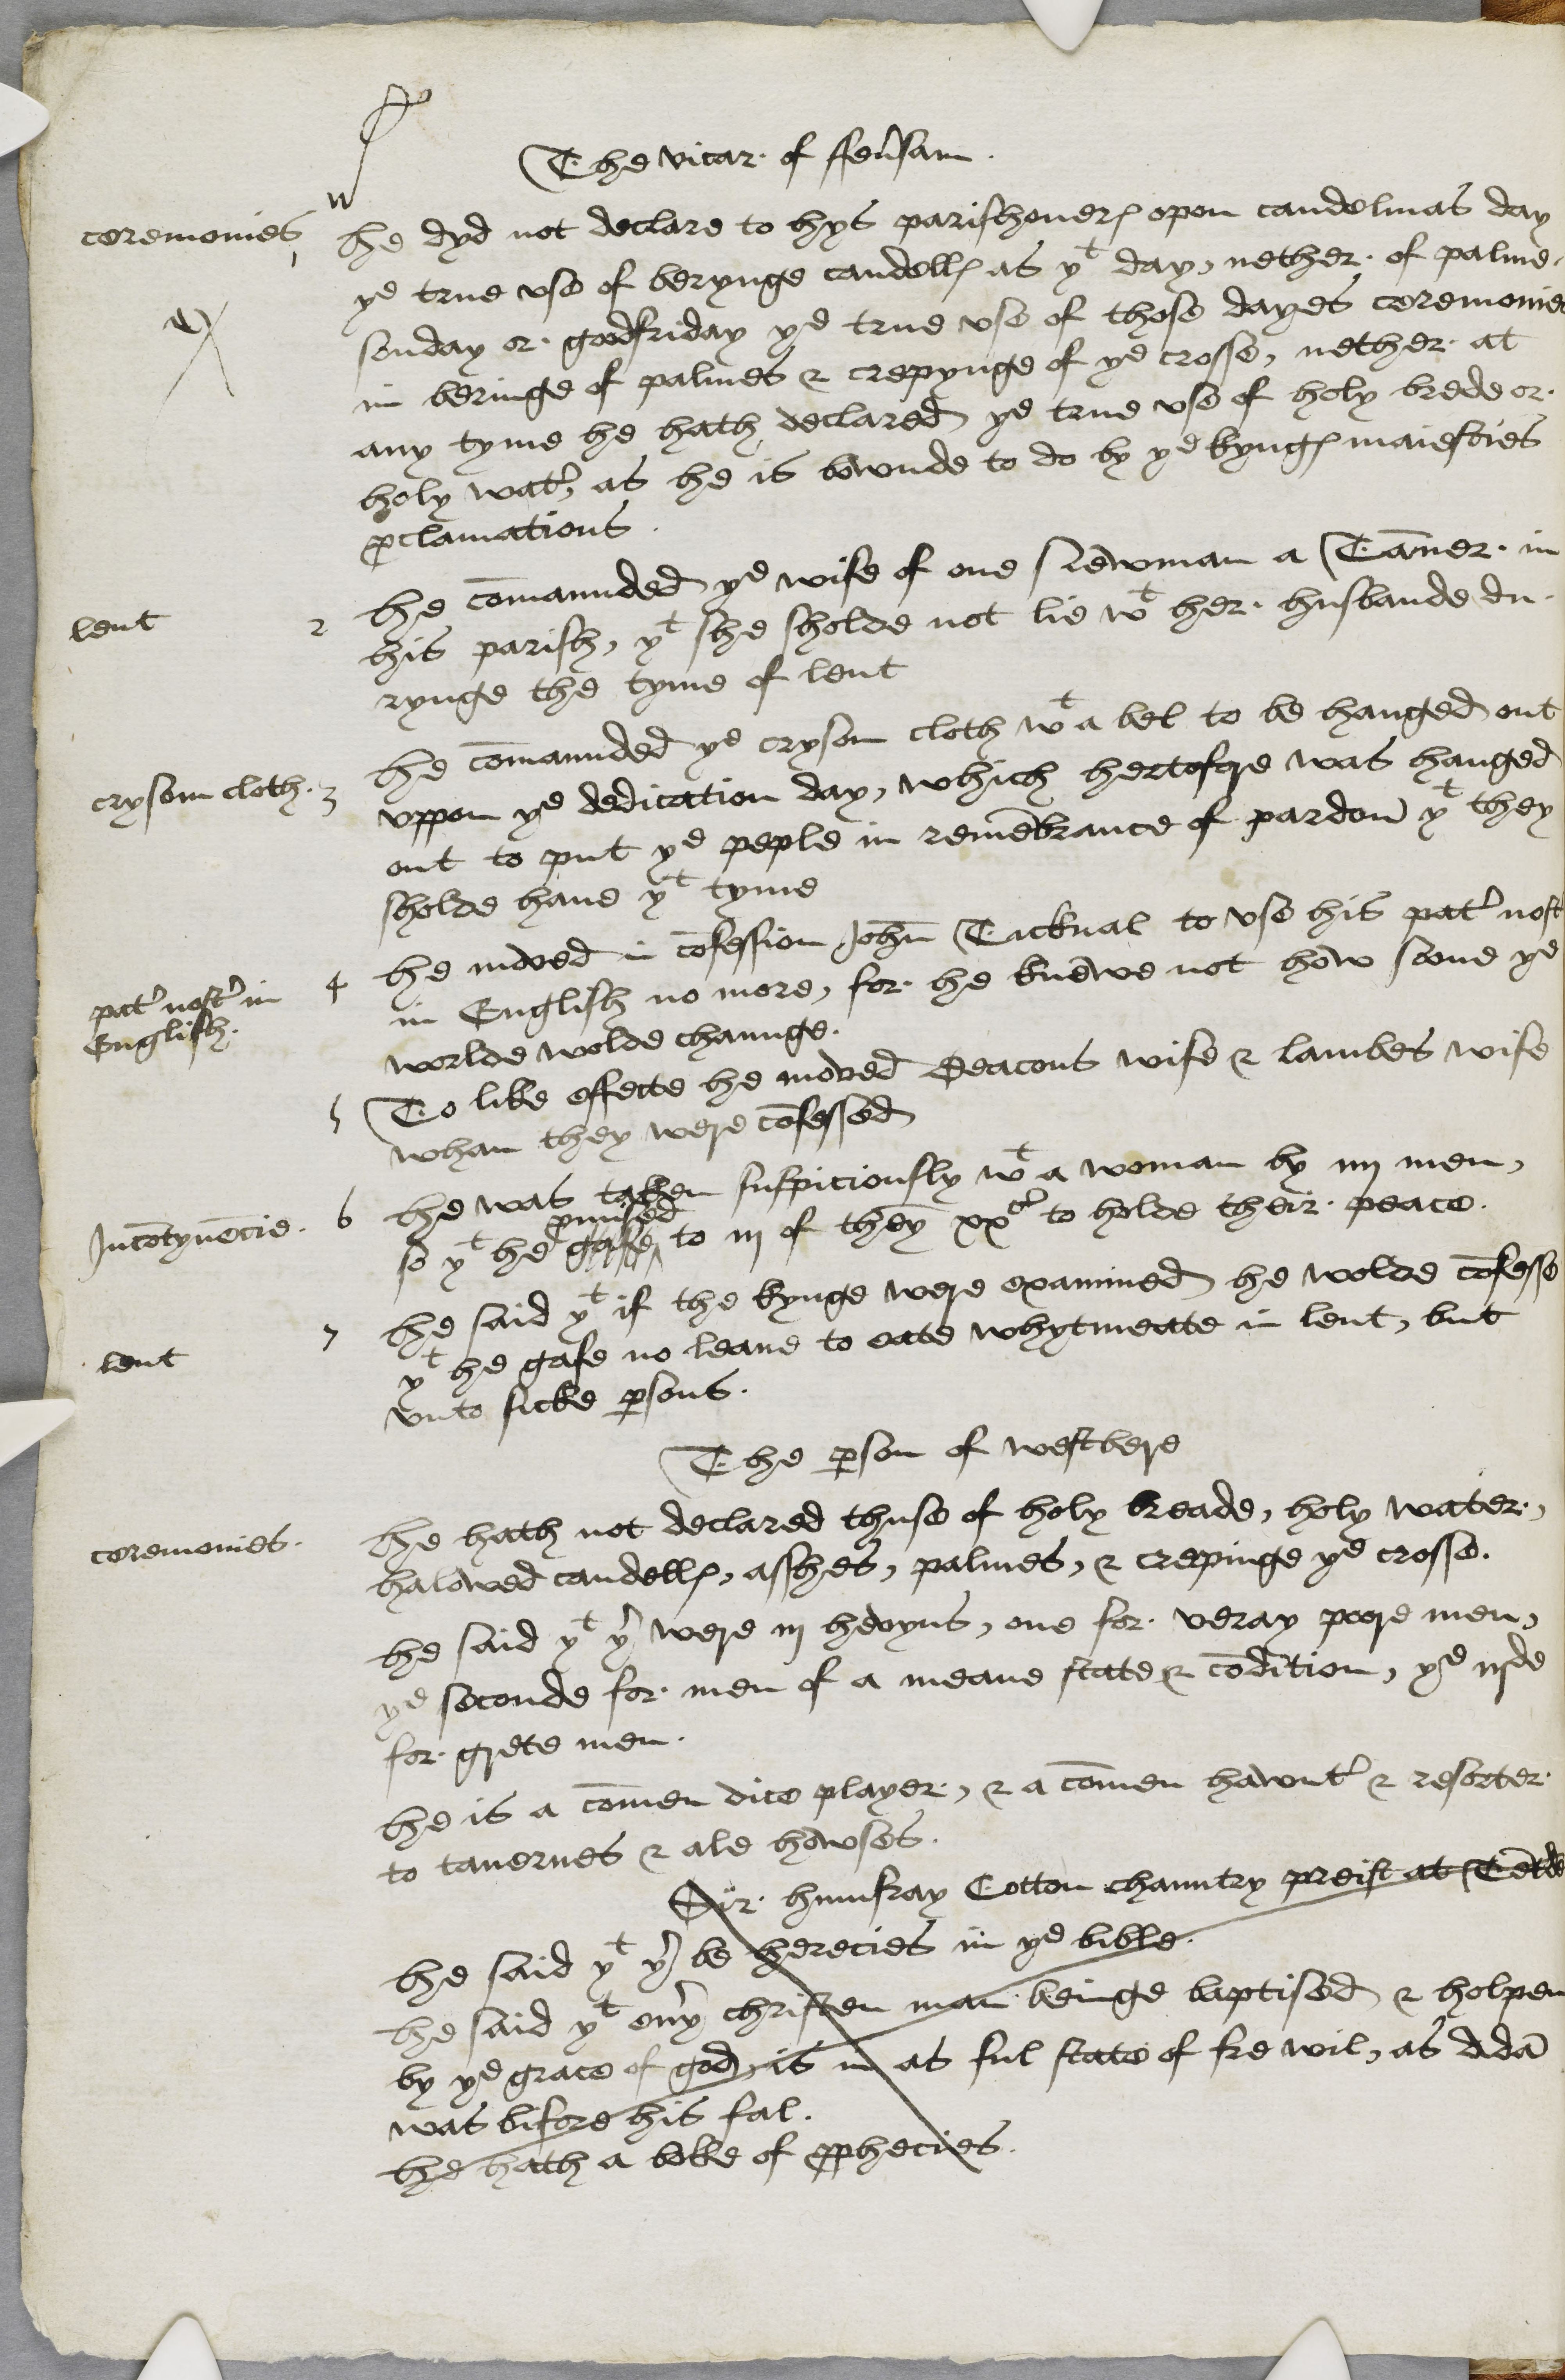 The vicar of ffeu'sam.
ceremonies
1 he dyd not declare to hys parischoners opon candelmas day
ye true vse of berynge candells as yt day, nether of palme
sonday or goodfriday ye true vse of those dayes ceremonies
in beringe of palmes & crepynge of ye crosse, nether at
any tyme he hath declared ye true vse of holy brede or
holy wat', as he is bownde to do by ye kyngs maiesties
pclamations.
lent
2 he com̄aunded ye wife of one Newman a Tān̄er in
his parish, yt she sholde not lie wt her husbande du-
rynge the tyme of lent
crysom cloth.
3 he com̄aunded ye crysom cloth wt a bel to be hanged out
vppon ye dedication day, which hertofore was hanged
out to put ye peple in remēbrance of pardon yt they
sholde haue yt tyme
pat' nost' in
English.
4 he moved in cōfession John Tacknal to vse his pat' nost'
in English no more, for he knewe not how sone ye
worlde wolde chaunge.
5 To like effecte he moved Deacons wife & lambes wife
whan they were cōfessed
Incōtynēcie.
6 he was taken suspiciously wt a woman by iiij men,
pmised
so yt he gafe to iij of they xxs to holde their peace.
lent
7 he said yt if the kynge were examined he wolde cōfesse
yt he gafe no leaue to eate whytmeate in lent, but
vnto sicke psons.
The pson of westbere
ceremonies.
he hath not declared thuse of holy breade, holy water,
halowed candells, asshes, palmes, & crepinge ye crosse.
he said yt yr were iij hevyns, one for veray poore men,
ye seconde for men of a meane state & cōdition, ye iijde
for grete men.
he is a com̄en dice player, & a com̄en hawnt' & resorter
to tauernes & ale howses.
Sir humfray Cotton chauntry preist at Tētde
he said yt yr be herecies in ye bible.
he said yt eu'y christen man beinge baptised & holpen
by ye grace of god, is in as ful state of fre wil, as Adā
was bifore his fal.
he hath a boke of pphecies.